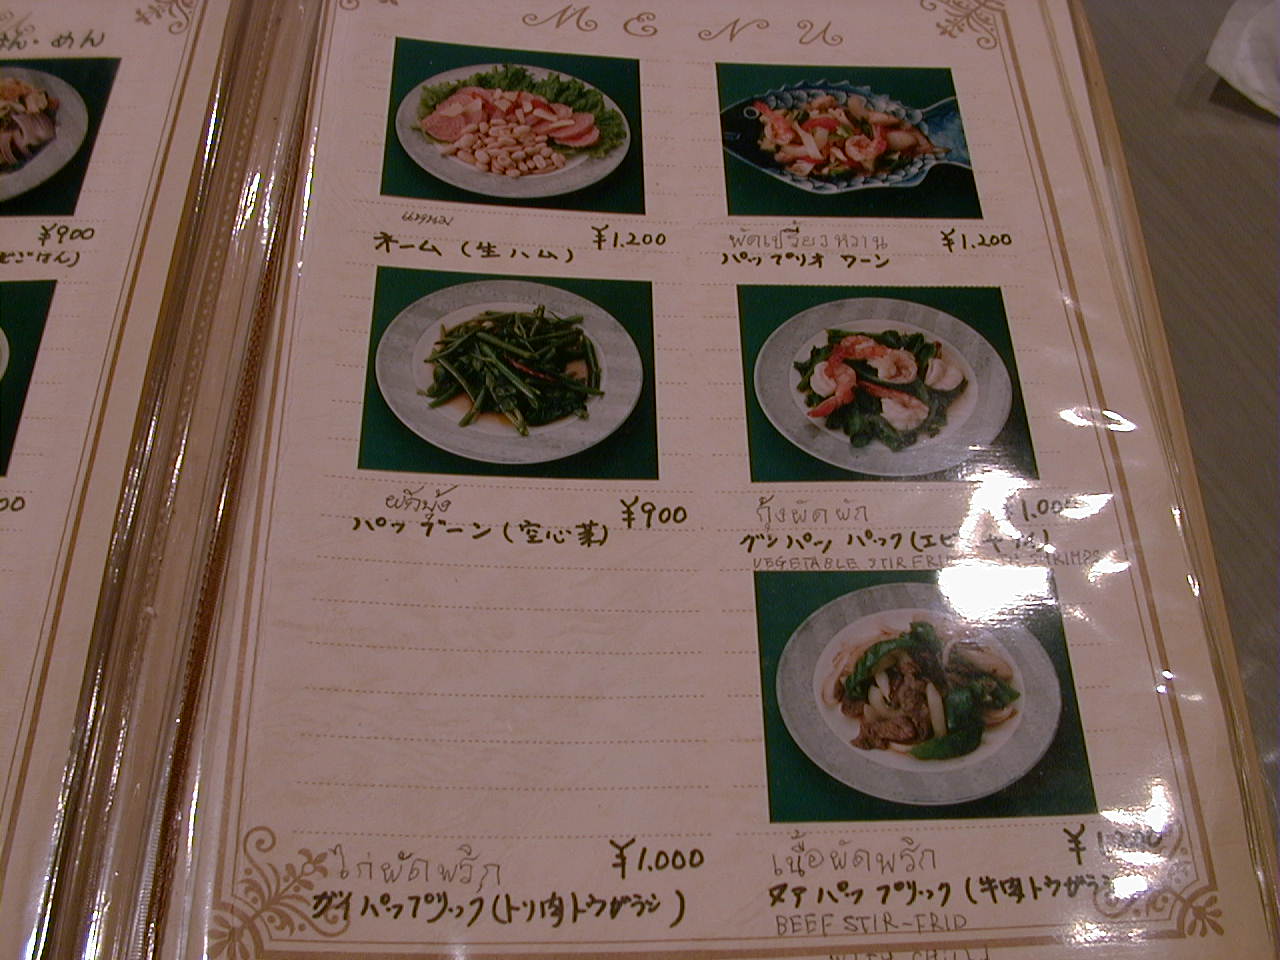 はん・めん
¥900
MENU
แหนม
¥1.200
ネーム (生ハム)
ผัดเปรี้ยวหวาน
¥1.200
パップリオ ワーン
ผักบุ้ง
¥900
パップーン (空心菜)
กุ้งผัดผัก
1.00
グンパッ パック (エビ
VEGETABLE STIR FRID SHRIMPS
ไก่ผัดพริก
¥1.000
ガイ パップリック (トリ肉トウガラシ)
เนื้อผัดพริก
¥
ヌア パッ プリック (牛肉トウガラシ
BEEF STIR-FRID
WITH CHILI